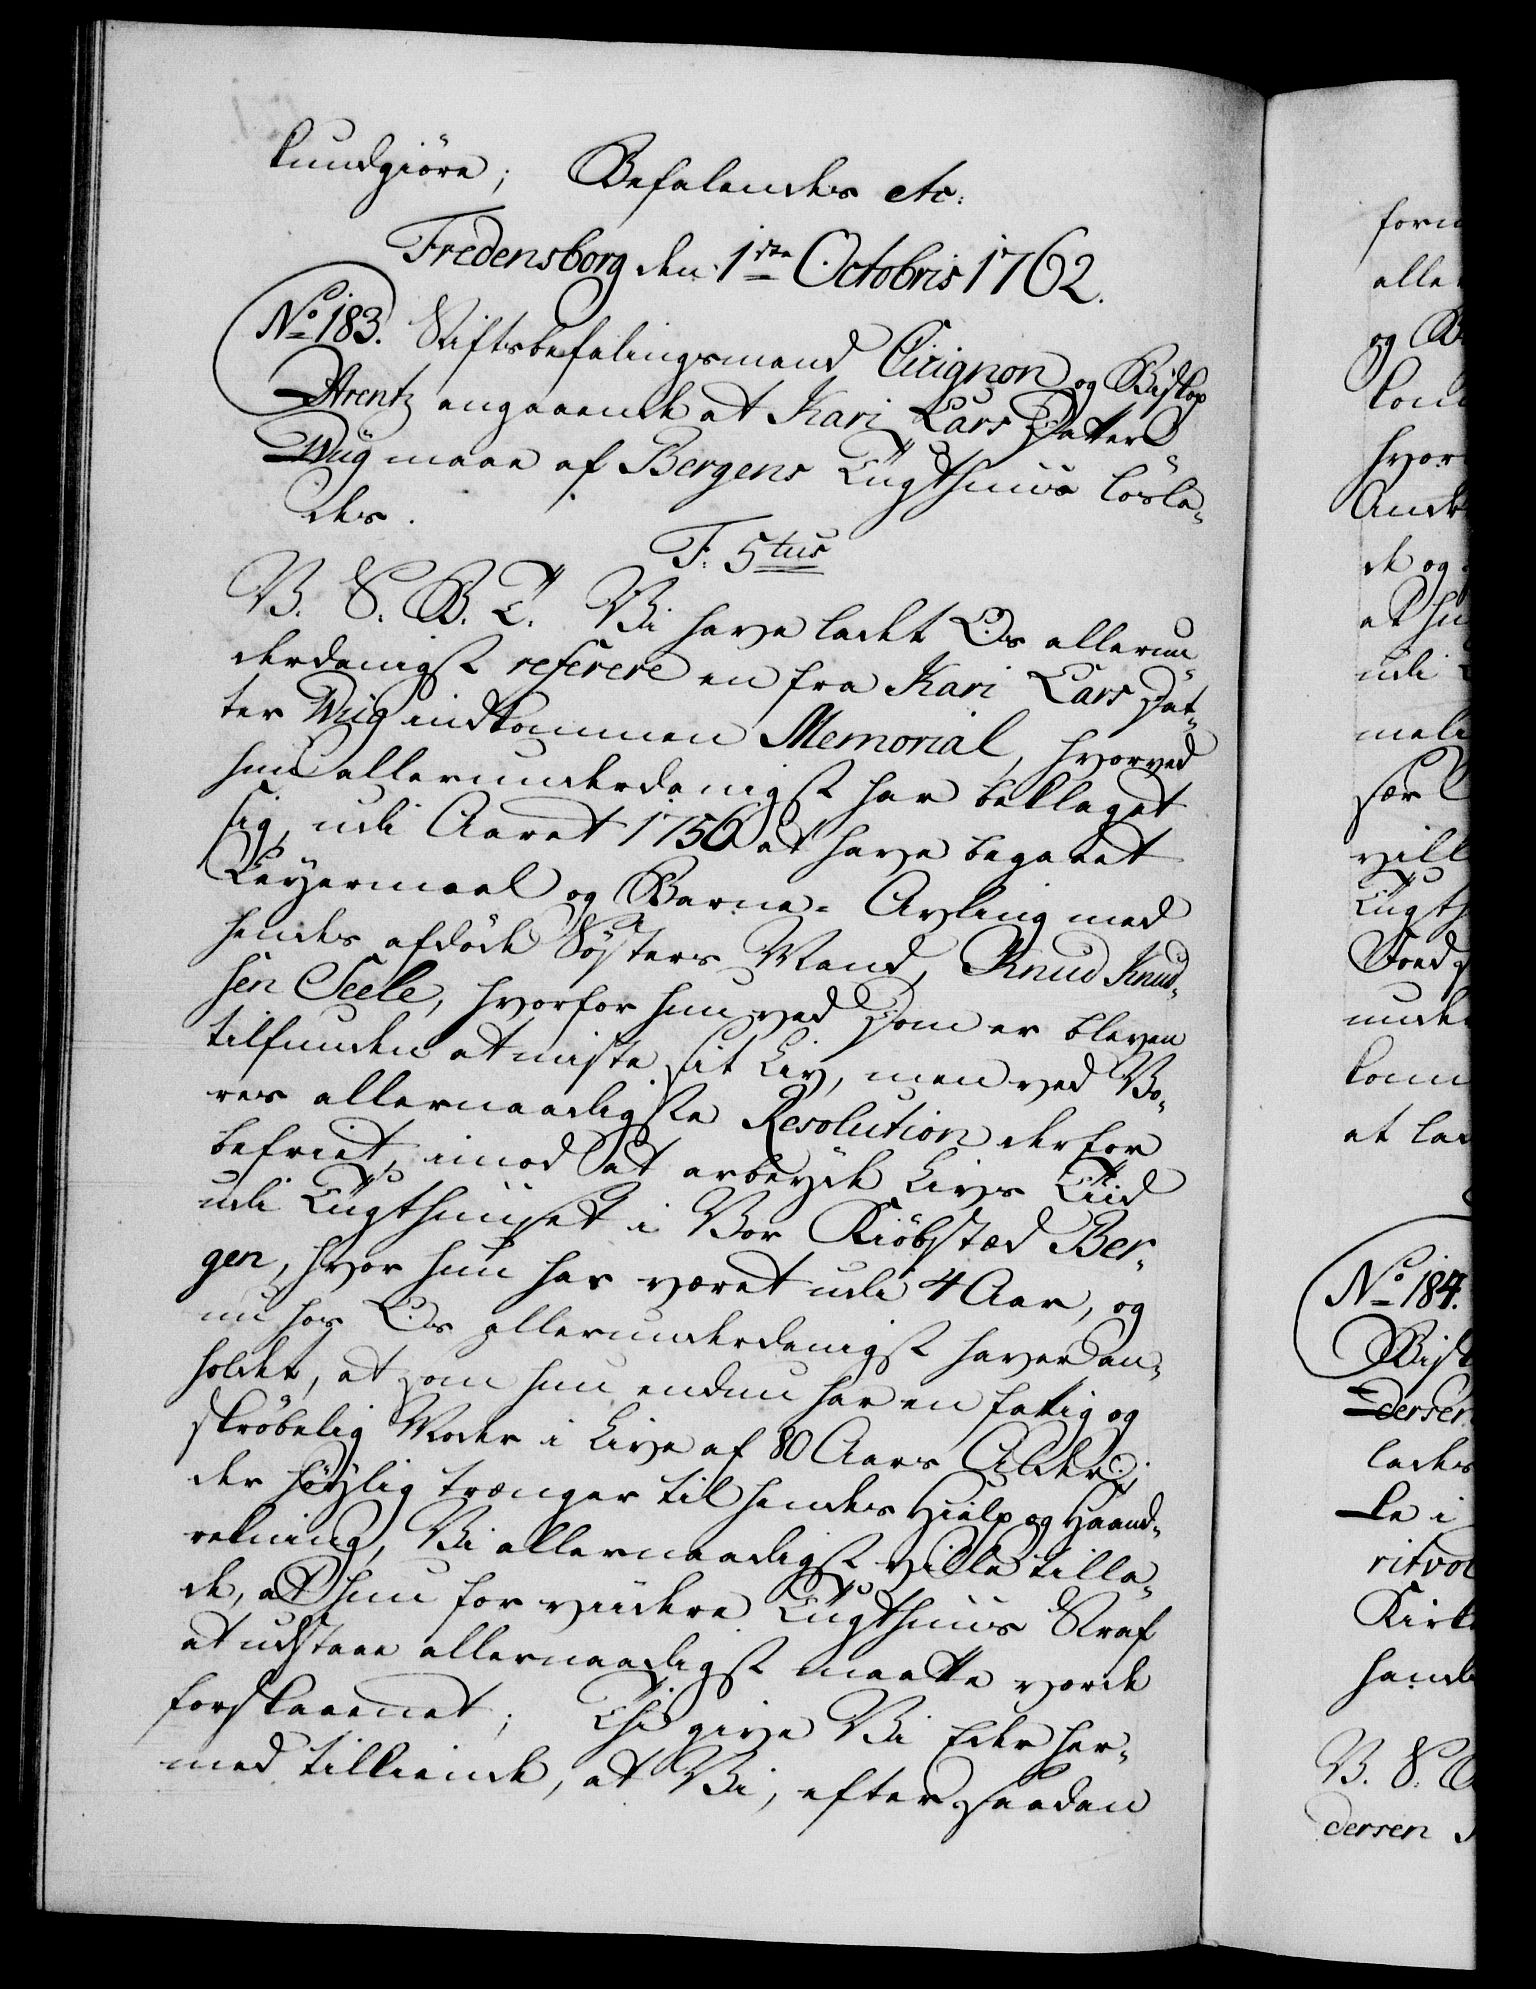 kundgiöre; Befalendes etc:
Fredensborg den 1ste Octobris 1762.
No 183. Stiftsbefalingsmand Cicignon og Biskop
Arentz angaaende at Kari Lars Datter
Wiig maae af Bergens Tugthuus lösla-
des.
F: 5tus
V. S. B. T. Vi have ladet Os allerun-
derdanigst referere en fra Kari Lars Dat-
ter Wiig indkommen Memorial, hvorved
hun allerunderdanigst har beklaget
sig, udi Aaret 1756 at have begaaet
Leyermaal og Barne-Avling med
hendes afdöde Sösters Mand, Knud Knud-
sen Seele, hvorfor hun ved Dom er bleven
tilfunden at miste sit Liv, men ved Vo-
res allernaadigste Resolution derfor
befriet, imod at arbeyde Livs Tiid
udi Tugthuuset i Vor Kiöbstæd Ber-
gen, hvor hun har været udi 4 Aar, og
nu hos Os allerunderdanigst haver an-
holdet, at som hun endnu har en fattig og
skröbelig Moder i Live af 80 Aars Alder,
der höylig trænger til hendes Hielp og Haand-
rekning, Vi allernaadigst ville tilla-
de, at hun for viidere Tugthuus Straf
at udstaae allernaadigst maatte vorde
forskaanet; Thi give Vi Eder her-
med tilkiende, at Vi, efter saadan
forn
alle
og B
kom
hvor
de og
at hu
udi
vill
Tugth
at lad
No 184.
Bisk
dersen
lades
Kirk
V. S.
dersen